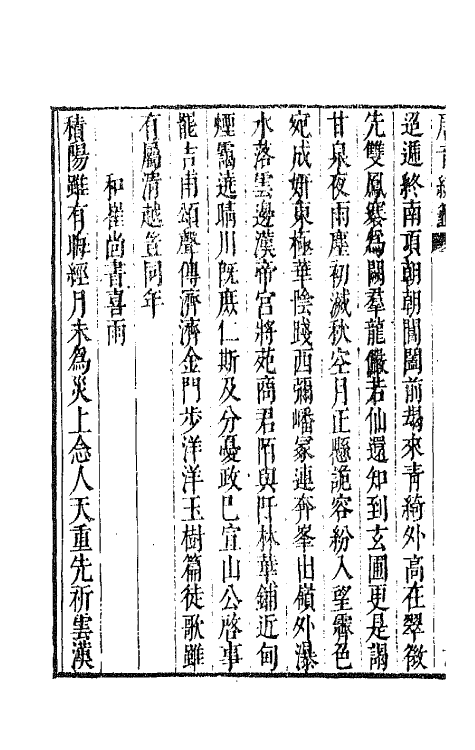 迢遞終南項朝朝閶闔前朅來青綺外高在翠微
先雙鳳褰為闕羣龍儼若仙還知到玄圃更是謁
甘泉夜雨塵初滅秋空月正懸詭容紛入望霽色
宛成妍東極華陰踐西彌嶓冢連奔峯出嶺外瀑
水落雲邊漢帝宮將苑商君陌與阡林華鋪近甸
煙靄遶晴川既庶仁斯及分憂政巳宜山公啓事
能吉甫頌聲傳濟濟金門步洋洋玉樹篇徒歌雖
有屬清越豈同年
和崔尚書喜雨
積陽雖有晦經月未為災上念人天重先祈雲漢